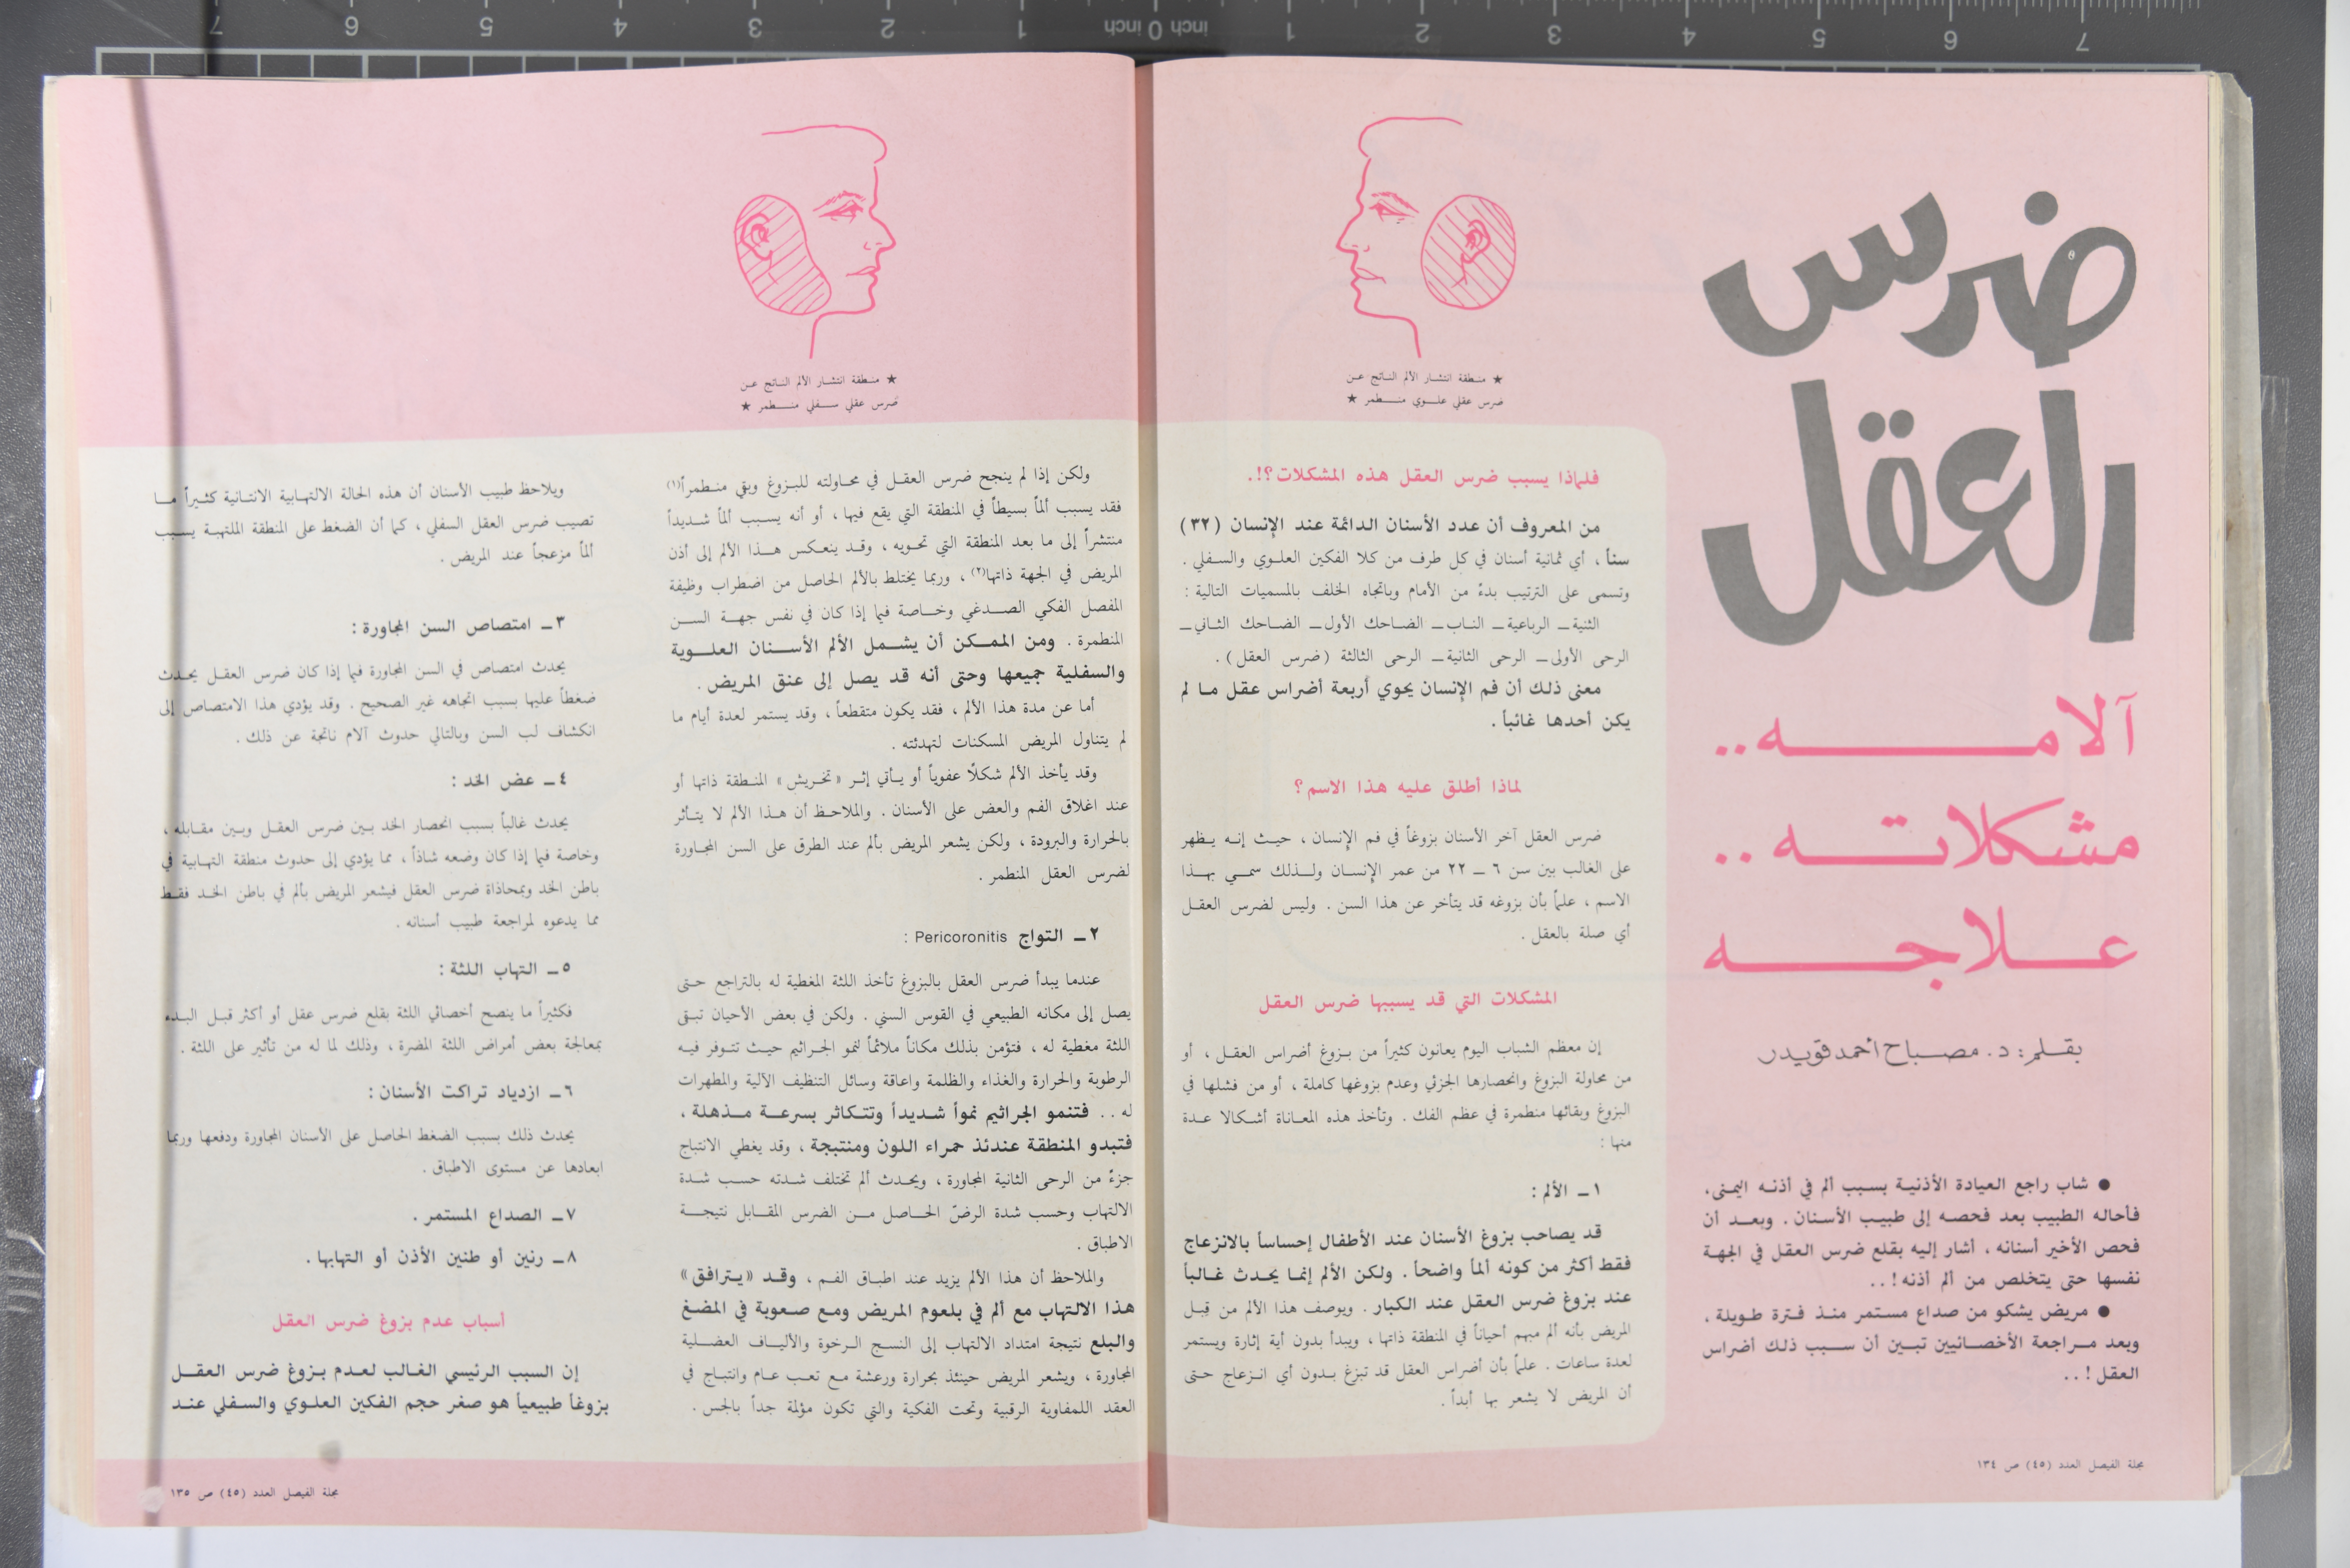 ضرس
العقل
آلامه..
مشكلاته..
علاجه
بقلم: د. مصباح أحمد قويدر
● شاب راجع العيادة الأذنية بسبب ألم في أذنه اليمنى،
فأحاله الطبيب بعد فحصه إلى طبيب الأسنان. وبعد أن
فحص الأخير أسنانه، أشار إليه بقلع ضرس العقل في الجهة
نفسها حتى يتخلص من ألم أذنه!..
● مريض يشكو من صداع مستمر منذ فترة طويلة،
وبعد مراجعة الأخصائيين تبين أن سبب ذلك أضراس
العقل!..
مجلة الفيصل العدد (٤٥) ص ١٣٤
★ منطقة انتشار الألم الناتج عن
ضرس عقلي علوي منطمر ★
فلماذا يسبب ضرس العقل هذه المشكلات؟!.
من المعروف أن عدد الأسنان الدائمة عند الإنسان (٣٢)
سناً، أي ثمانية أسنان في كل طرف من كلا الفكين العلوي والسفلي.
وتسمى على الترتيب بدءً من الأمام وباتجاه الخلف بالمسميات التالية:
الثنية ــ الرباعية ــ الناب ــ الضاحك الأول ــ الضاحك الثاني ــ
الرحى الأولى ــ الرحى الثانية ــ الرحى الثالثة (ضرس العقل).
معنى ذلك أن فم الإنسان يحوي أربعة أضراس عقل ما لم
يكن أحدها غائباً.
لماذا أطلق عليه هذا الاسم؟
ضرس العقل آخر الأسنان بزوغاً في فم الإنسان، حيث إنه يظهر
على الغالب بين سن ٦ ــ ٢٢ من عمر الإنسان ولذلك سمي بهذا
الاسم، علماً بأن بزوغه قد يتأخر عن هذا السن. وليس لضرس العقل
أي صلة بالعقل.
المشكلات التي قد يسببها ضرس العقل
إن معظم الشباب اليوم يعانون كثيراً من بزوغ أضراس العقل، أو
من محاولة البزوغ وانحصارها الجزئي وعدم بزوغها كاملة، أو من فشلها في
البزوغ وبقائها منطمرة في عظم الفك. وتأخذ هذه المعاناة أشكالا عدة
منها:
١ ــ الألم:
قد يصاحب بزوغ الأسنان عند الأطفال إحساساً بالانزعاج
فقط أكثر من كونه ألماً واضحاً. ولكن الألم إنما يحدث غالباً
عند بزوغ ضرس العقل عند الكبار. ويوصف هذا الألم من قِبل
المريض بأنه ألم مبهم أحياناً في المنطقة ذاتها، ويبدأ بدون أية إثارة ويستمر
لعدة ساعات. علماً بأن أضراس العقل قد تبزغ بدون أي انزعاج حتى
أن المريض لا يشعر بها أبداً.
★ منطقة انتشار الألم الناتج عن
ضرس عقلي سفلي منطمر ★
ولكن إذا لم ينجح ضرس العقل في محاولته للبزوغ وبقي منطمراً(١)
فقد يسبب ألماً بسيطاً في المنطقة التي يقع فيها، أو أنه يسبب ألماً شديداً
منتشراً إلى ما بعد المنطقة التي تحويه، وقد ينعكس هذا الألم إلى أذن
المريض في الجهة ذاتها(٢)، وربما يختلط بالألم الحاصل من اضطراب وظيفة
المفصل الفكي الصدغي وخاصة فيما إذا كان في نفس جهة السن
المنطمرة. ومن الممكن أن يشمل الألم الأسنان العلوية
والسفلية جميعها وحتى أنه قد يصل إلى عنق المريض.
أما عن مدة هذا الألم، فقد يكون متقطعاً، وقد يستمر لعدة أيام ما
لم يتناول المريض المسكنات لتهدئته.
وقد يأخذ الألم شكلاً عفوياً أو يأتي إثر «تخريش» المنطقة ذاتها أو
عند اغلاق الفم والعض على الأسنان. والملاحظ أن هذا الألم لا يتأثر
بالحرارة والبرودة، ولكن يشعر المريض بألم عند الطرق على السن المجاورة
لضرس العقل المنطمر.
٢ ــ التواج Pericoronitis :
عندما يبدأ ضرس العقل بالبزوغ تأخذ اللثة المغطية له بالتراجع حتى
يصل إلى مكانه الطبيعي في القوس السني. ولكن في بعض الأحيان تبقى
اللثة مغطية له، فتؤمن بذلك مكاناً ملائماً لنمو الجراثيم حيث تتوفر فيه
الرطوبة والحرارة والغذاء والظلمة واعاقة وسائل التنظيف الآلية والمطهرات
له.. فتنمو الجراثيم نمواً شديداً وتتكاثر بسرعة مذهلة،
فتبدو المنطقة عندئذ حمراء اللون ومنتبجة، وقد يغطي الانتباج
جزءً من الرحى الثانية المجاورة، ويحدث ألم تختلف شدته حسب شدة
الالتهاب وحسب شدة الرضّ الحاصل من الضرس المقابل نتيجة
الاطباق.
والملاحظ أن هذا الألم يزيد عند اطباق الفم، وقد «يترافق»
هذا الالتهاب مع ألم في بلعوم المريض ومع صعوبة في المضغ
والبلع نتيجة امتداد الالتهاب إلى النسج الرخوة والألياف العضلية
المجاورة، ويشعر المريض حينئذ بحرارة ورعشة مع تعب عام وانتباج في
العقد اللمفاوية الرقبية وتحت الفكية والتي تكون مؤلمة جداً بالجس.
ويلاحظ طبيب الأسنان أن هذه الحالة الالتهابية الانتانية كثيراً ما
تصيب ضرس العقل السفلي، كما أن الضغط على المنطقة الملتهبة يسبب
ألماً مزعجاً عند المريض.
٣ ــ امتصاص السن المجاورة:
يحدث امتصاص في السن المجاورة فيما إذا كان ضرس العقل يحدث
ضغطاً عليها بسبب اتجاهه غير الصحيح. وقد يؤدي هذا الامتصاص إلى
انكشاف لب السن وبالتالي حدوث آلام ناتجة عن ذلك.
٤ ــ عض الخد:
يحدث غالباً بسبب انحصار الخد بين ضرس العقل وبين مقابله،
وخاصة فيما إذا كان وضعه شاذاً، مما يؤدي إلى حدوث منطقة التهابية في
باطن الخد وبمحاذاة ضرس العقل فيشعر المريض بألم في باطن الخد فقط
مما يدعوه لمراجعة طبيب أسنانه.
٥ ــ التهاب اللثة:
فكثيراً ما ينصح أخصائي اللثة بقلع ضرس عقل أو أكثر قبل البدء
بمعالجة بعض أمراض اللثة المضرة، وذلك لما له من تأثير على اللثة.
٦ ــ ازدياد تراكت الأسنان:
يحدث ذلك بسبب الضغط الحاصل على الأسنان المجاورة ودفعها وربما
ابعادها عن مستوى الاطباق.
٧ ــ الصداع المستمر.
٨ ــ رنين أو طنين الأذن أو التهابها.
أسباب عدم بزوغ ضرس العقل
إن السبب الرئيسي الغالب لعدم بزوغ ضرس العقل
بزوغاً طبيعياً هو صغر حجم الفكين العلوي والسفلي عند
مجلة الفيصل العدد (٤٥) ص ١٣٥
7 6 5 4 3 2 1 inch 0 inch 1 2 3 4 5 6 7